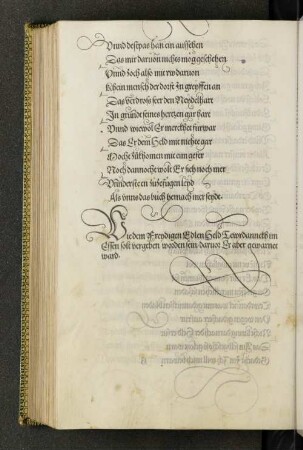 Vnnd desspas han ein aufsehen
Das mir daruon nichts mög geschehen
Vnnd hoch also mit daruon
Khein mensch der dorst In greyffen an
Das verdross seer den Neydelhart
Im grundt seines hertzen gar hart
Vnnd wiewol Er merckhet fürwar
Das Er dem Held mit nichte gar
Mocht zukhomen mit eim gefer
Noch dannocht wolt Er sich noch mer
Vnndersteen zubefügen leyd
Als vnns das buch hernach mer seyde
Wie dem Frewdigen Edlen Held Tewrdannckh im
Essen solt vergeben worden sein daruor Er aber gewarnet
ward